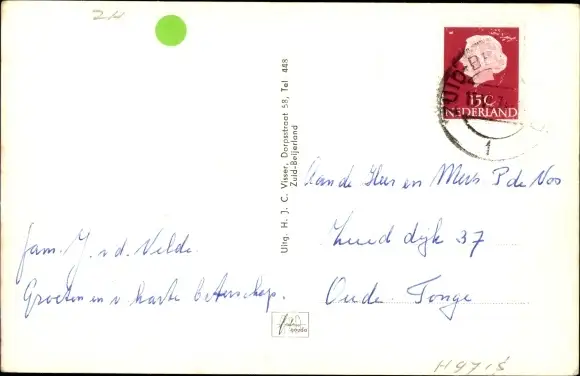 24
15C
NEDERLAND
1
Uitg. H. J. C. Visser, Dorpsstraat 58, Tel 448
Zuid-Beijerland
Aan de Heer en Mevr P de Vos
Zuid dijk 37
Oude Tonge
fam. J. v. d. Velde.
Groeten en v harte beterschap.
H9715